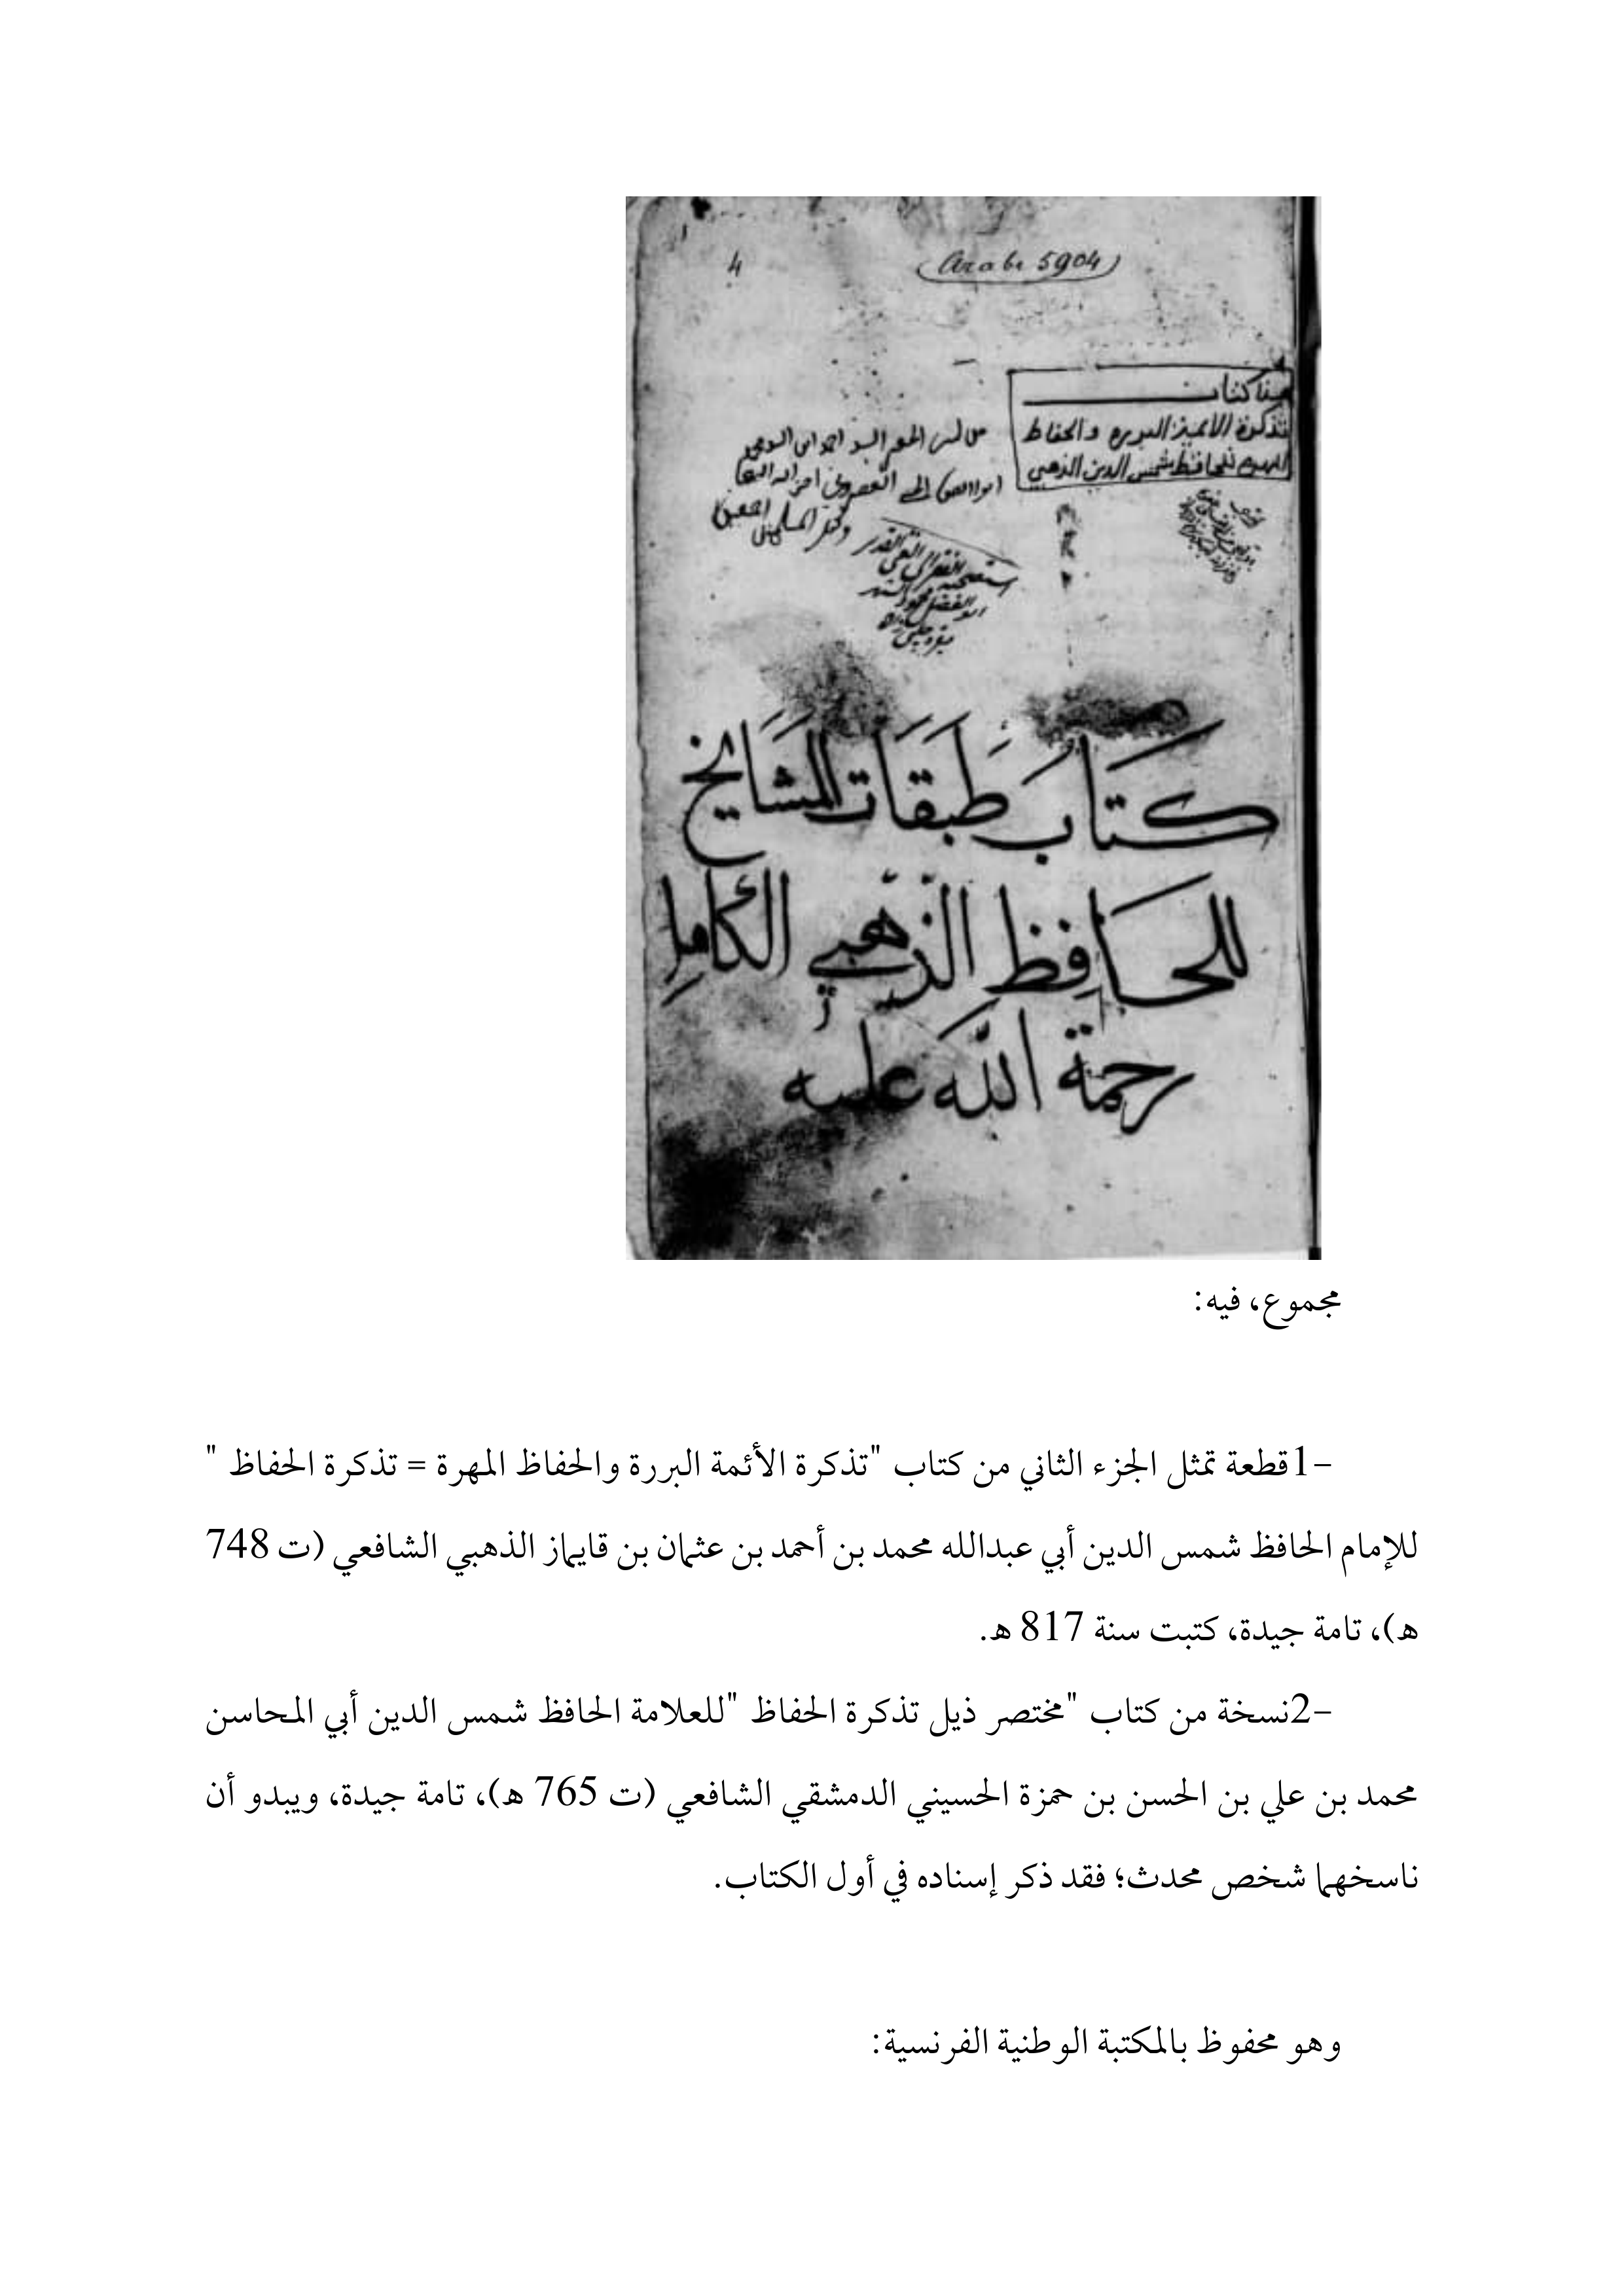 4
Arabe 5904
هذا كتاب
تذكرة الائمة البررة والحفاظ
المهرة للحافظ شمس الدين الذهبي
اجمعين
كتاب طبقات المشايخ
للحافظ الذهبي الكامل
رحمة الله عليه
مجموع، فيه:
–1قطعة تمثل الجزء الثاني من كتاب "تذكرة الأئمة البررة والحفاظ المهرة = تذكرة الحفاظ "
للإمام الحافظ شمس الدين أبي عبدالله محمد بن أحمد بن عثمان بن قايماز الذهبي الشافعي (ت 748
ه)، تامة جيدة، كتبت سنة 817 ه.
–2نسخة من كتاب "مختصر ذيل تذكرة الحفاظ "للعلامة الحافظ شمس الدين أبي المحاسن
محمد بن علي بن الحسن بن حمزة الحسيني الدمشقي الشافعي (ت 765 ه)، تامة جيدة، ويبدو أن
ناسخهما شخص محدث؛ فقد ذكر إسناده في أول الكتاب.
وهو محفوظ بالمكتبة الوطنية الفرنسية: